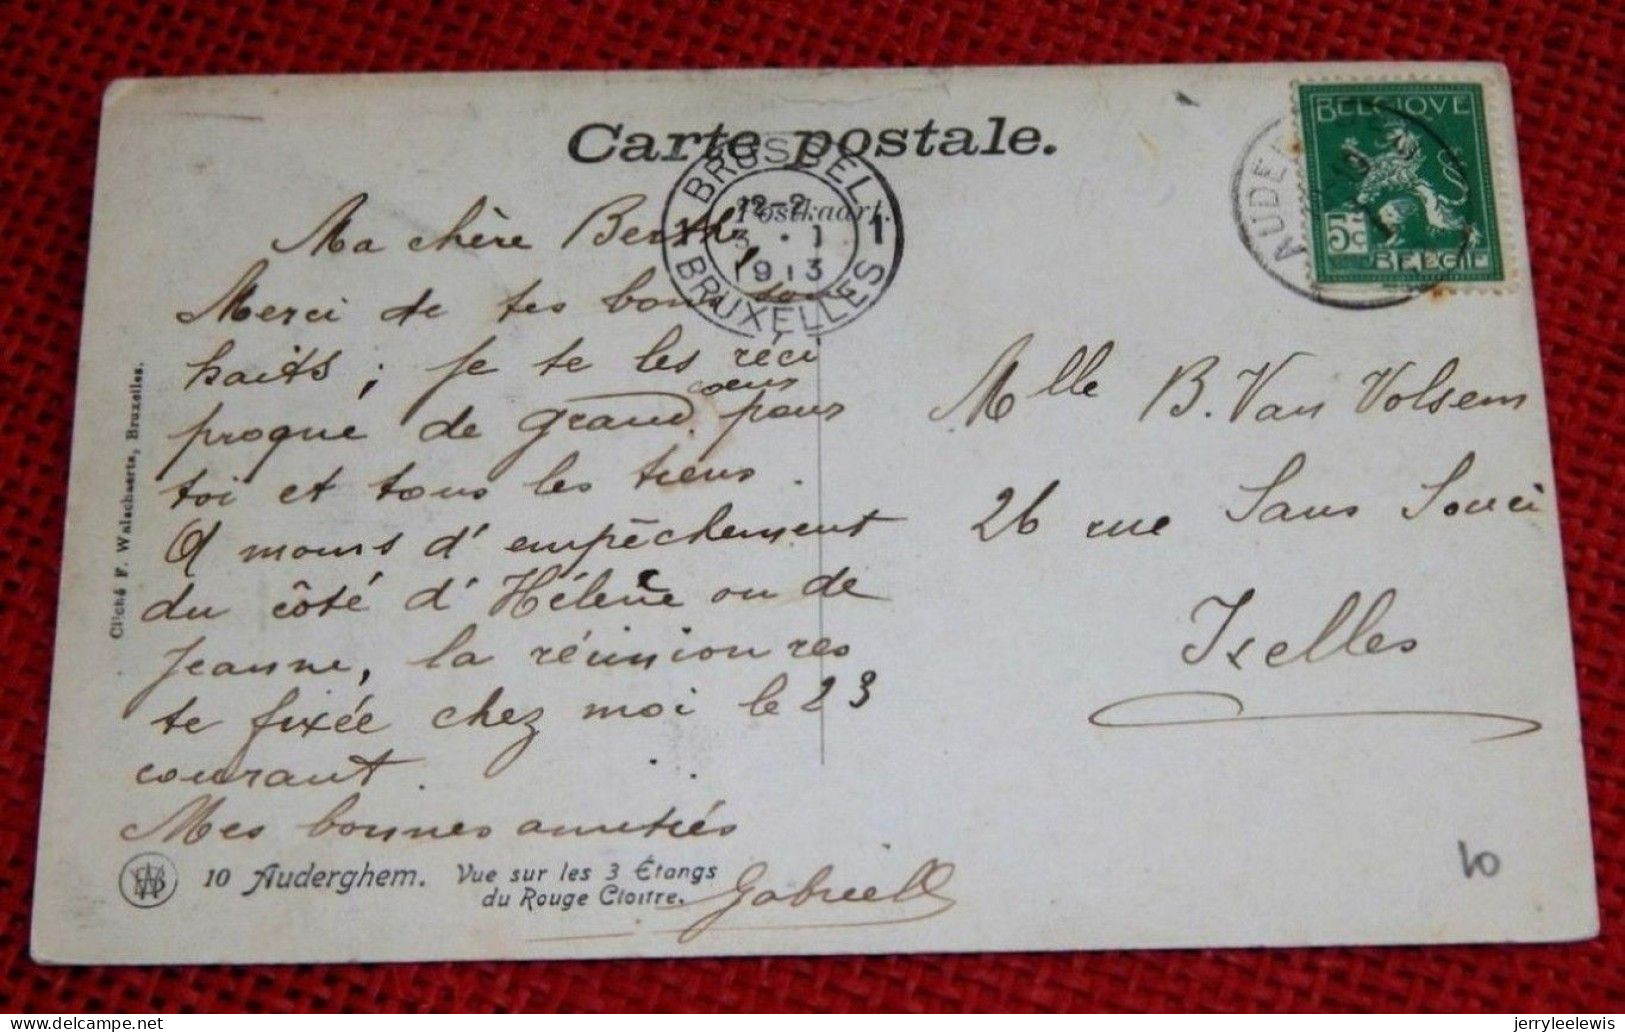 Carte postale.
Postkaart.
BRUSSEL
12-2
1 3 · I 1
1913
BRUXELLES
BELGIQUE
5c
BELGIË
AUDER
Ma chère Berthe,
Merci de tes bons sou
haits ; je te les réci
proque de grand coeur pour
toi et tous les tiens.
A moins d'empêchement
du côté d'Hélène ou de
Jeanne, la réunion res
te fixée chez moi le 23
courant.
Mes bonnes amitiés
Gabrielle
Mlle B. Van Volsem
26 rue Sans Souci
Ixelles
10
Cliché F. Walschaerts, Bruxelles.
10 Auderghem. Vue sur les 3 Étangs
du Rouge Cloître.
jerryleelewis